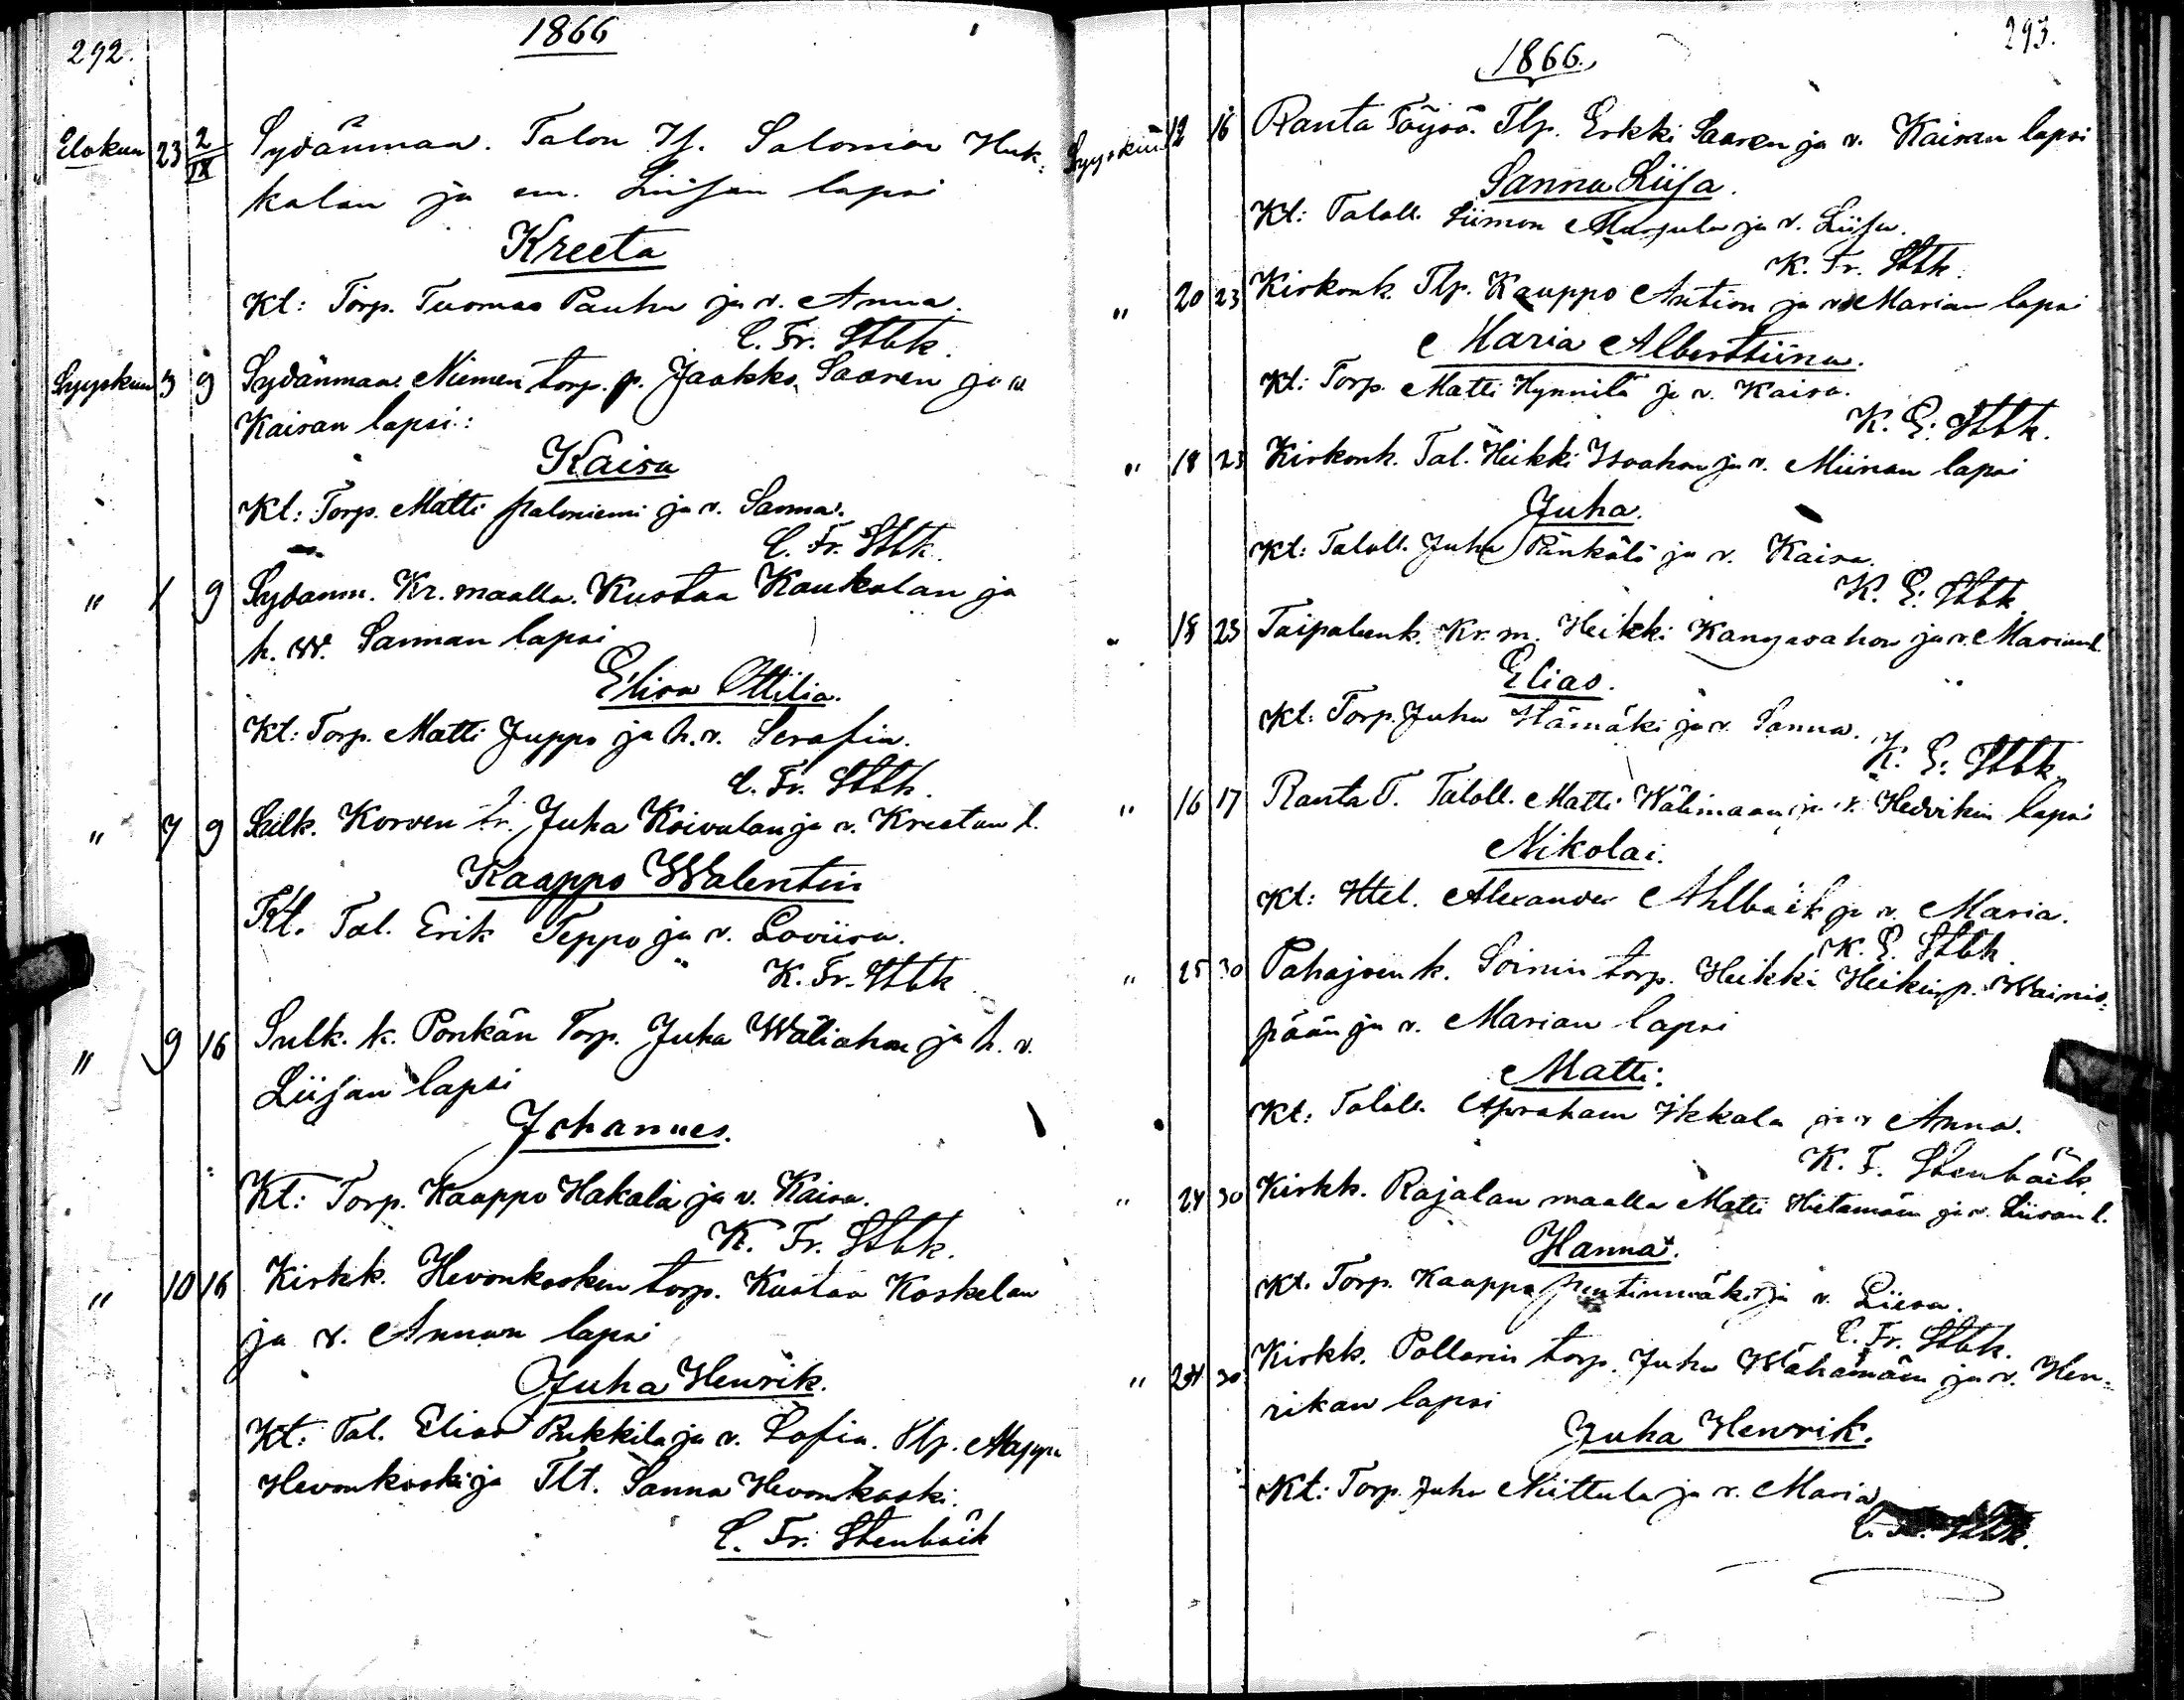 292.
1866
Elokun 23 2/IX Sydänmaa. Talon Is. Salomon Huk-
kalan ja em. Liisan lapsi
Kreeta
Kt: Torp. Tuomas Pauha ja v. Anna.
C. Fr. Stbk.
Syyskuun 3 9 Sydänmaa Niemen torp. p. Jaakko Saaren ja v.
Kaisan lapsi:
Kaisa
Kt: Torp. Matti Paloniemi ja v. Sanna.
C. Fr. Stbk.
" 1 9 Sydänm. Kr. maalla. Kustaa Kaukolan ja
h. w. Sannan lapsi
Elisa Ottilia.
Kt: Torp. Matti Juppo ja h. v. Serafia.
C. Fr. Stbk.
" 7 9 Sulk. Korven tr. Juha Koivulan ja v. Kreetan l.
Kaappo Walentin
Kt. Tal. Erik Teppo ja v. Loviisa.
K. Fr. Stbk
" 9 16 Sulk. k. Ponkän Torp. Juha Wäliahon ja h. v.
Liisan lapsi
Johannes.
Kt: Torp. Kaappo Hakala ja v. Kaisa.
K. Fr. Stbk.
" 10 16 Kirkk. Hevonkosken torp. Kustaa Koskelan
ja v. Annan lapsi
Juha Henrik.
Kt: Tal. Elias Pukkila ja v. Sofia. Tlp.
Hevonkoski ja Tlt. Sanna Hevonkoski.
C. Fr. Stenbäck
293.
1866.
Syyskuu 12 16 Ranta Töysä. Tlp. Erkki Saaren ja v. Kaisan lapsi
Sanna Liisa.
Kt: Taloll. Siimon ja v. Liisa.
K. Fr. Stbk.
" 20 23 Kirkonk. Tlp. Kauppo Antion ja v. Marian lapsi
Maria Albertiina.
Kt: Torp. Matti Hynnilä ja v. Kaisa.
K. E. Stbk.
" 18 23 Kirkonk. Tal. Heikki Isoahon ja v. Miinan lapsi
Juha.
Kt: Taloll. Juha Pänkälä ja v. Kaisa.
K. E. Stbk
" 18 23 Taipaleenk. Kr. m. Heikki Kangasahon ja v. Marian l.
Elias.
Kt: Torp. Juha Hämäki ja v. Sanna.
K. E. Stbk.
" 16 17 Ranta T. Taloll. Matti Wälimaan ja v. Hedvikin lapsi
Nikolai.
Kt: Ittel. Alexander Ahlbäck ja v. Maria.
K. E. Stbk.
" 25 30 Pahajoen k. Soinin torp. Heikki Heikinp. Wainion-
pään ja v. Marian lapsi
Matti.
Kt: Taloll. Apraham Ikkala ja v Anna.
K. F. Stenbäck.
" 24 30 Kirkk. Rajalan maalla Matti Hietamäen ja v. Liisan l.
Hanna.
Kt. Torp. Kaappo Penttinmäki ja v. Liisa.
C. Fr. Stbk.
" 24 30 Kirkk. Pollarin torp. Juha Wähämäen ja v. Hen-
rikan lapsi
Juha Henrik.
Kt: Torp. Juha Niittula ja v. Maria
C. Fr. Stbk.